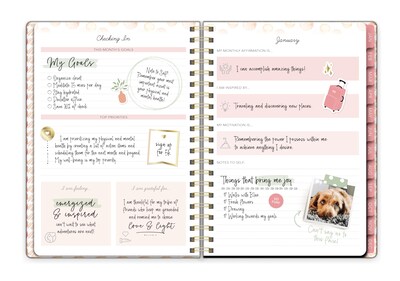 Checking In
THIS MONTH'S GOALS
My Goals:
Organize closet
Meditate 15 min per day
Stay hydrated
Declutter office
Note to Self:
Remember your most
important asset is
your physical and
mental health!
TOP PRIORITIES
I am prioritizing my physical and mental
health by creating a list of action items and
scheduling them for the next month and beyond.
My well-being is my top priority.
sign up
for 5k
I am feeling...
energized
& inspired
can't wait to see what
adventures are next!
I am grateful for...
I am thankful for my tribe of
friends who keep me grounded
and remind me to choose
Love & Light
January
MY MONTHLY AFFIRMATION IS...
I can accomplish amazing things!
I AM INSPIRED BY...
Traveling and discovering new places
MY MOTIVATION IS...
Remembering the power I possess within me
to achieve anything I desire
NOTES TO SELF
Things that bring me joy
Fresh flowers
Drawing
Working towards my goals
Can't say no to
this face!